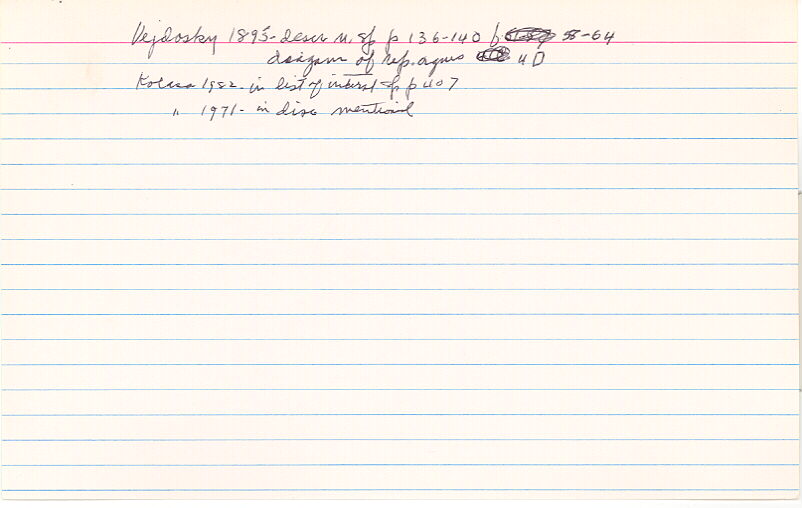 Vejdosky 1895- descr n. sp p 136-140 f 58-64
diagram of rep. organs 4 D
Kolasa 1982- in list of interst sp p 407
" 1971- in disc mentioned